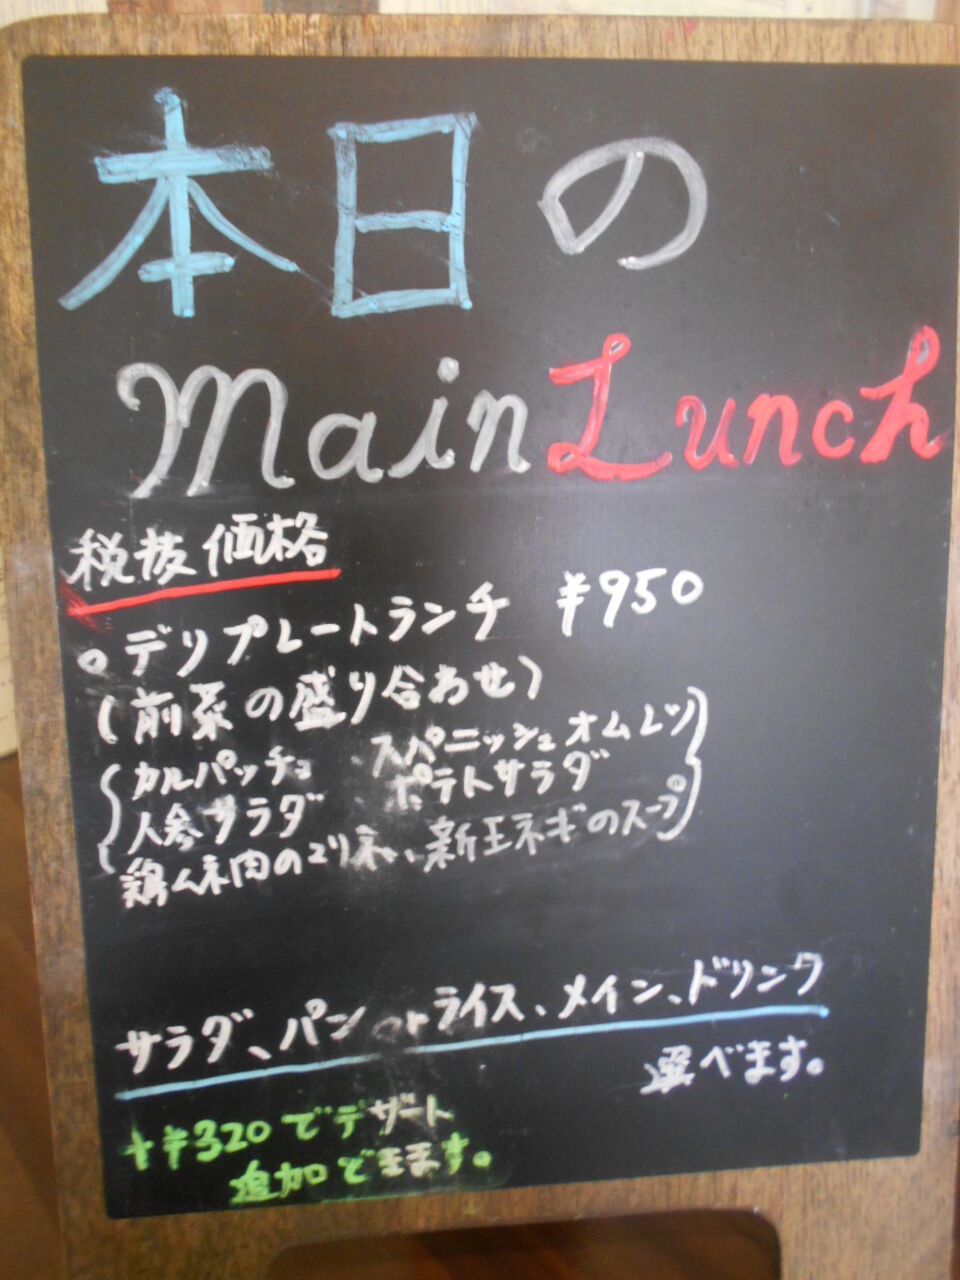 本日の
Main Lunch
税抜価格
○デリプレートランチ ¥950
(前菜の盛り合わせ)
カルパッチョ スパニッシュオムレツ
人参サラダ ポテトサラダ
鶏ムネ肉のマリネ、新玉ネギのスープ
サラダ、パン or ライス、メイン、ドリンク
選べます。
+¥320でデザート
追加できます。